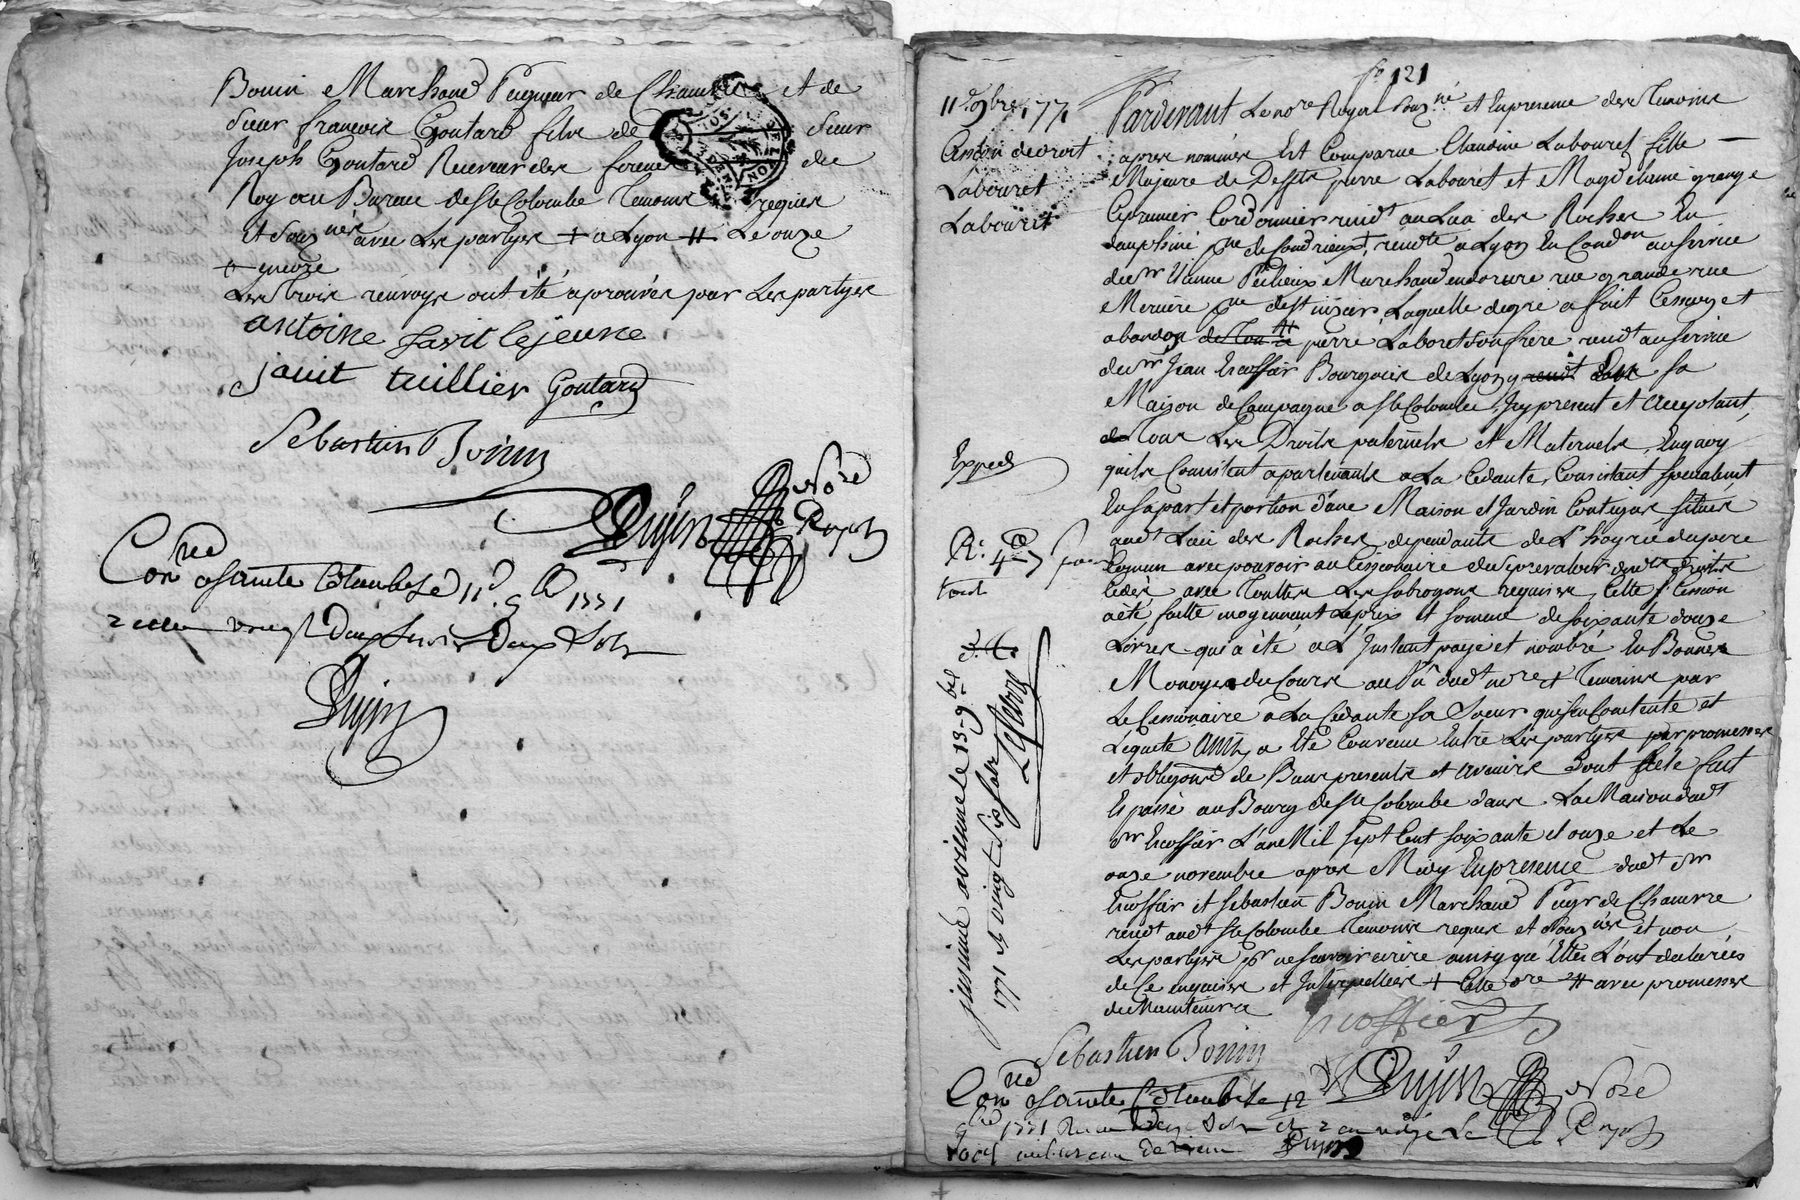 Bonin Marchand Peigneur de Chanvre et de
Sieur francois Goutard fils de Sieur
Joseph Goutard Receveur des fermes du
Roy au Bureau de Ste Colombe Temoins requis
Et Sousnés avec Les partyes + a Lyon # Le onze
+ encore
Les trois renvoys ont été aprouvés par Les partyes
antoine Janit lejeune
janit tuillier Goutard
Sebastien Bonin
Dujin Nore Royal
Conlé a Sainte Colombe Le 11e 9bre 1771
Dujin
fo 121
11e 9bre 1771
Cession de droit
Labouret
Labouret
Exped
Pardevant Le nore Royal Sousné et En presence des Temoins
apres nommés Est Comparue Claudine Labouret fille
Majeure de Deffts pierre Labouret et Magdelaine grange
Ce premier Cordonnier resident au Lieu des Roches En
dauphiné psse de Condrieux, resdte a Lyon En Condon au service
du Sr Etienne Marchand rue grande rue
Merciere psse de St nizier, Laquelle degré a fait Cession et
abandon pierre Laboret Son frere resdt au service
du Sr Jean Escoffier Bourgeois de Lyon sa
Maison de Campagne a Ste Colombe, Icy present et acceptant,
Tous Les Droits paternels et Maternels, En quoy
quils Consistent apartenants a La Cedante, Consistant specialemt
En sa part et portion d'une Maison et Jardin Contigus, situés
audt Lieu des Roches dependants de L'hoyrie du pere
Commun avec pouvoir au Cessionaire de se prevaloir desdts droits
Cedés avec Touttes Les subrogaons requises, Cette Cession
a été faitte moyennant Le prix et somme de soixante douze
Livres qui a été a L'Instant payé et nombré En Bonnes
Monoyes du Cours au vû dudt nore & Temoins par
Le Cessionaire a La Cedante sa Soeur qui s'en Contente et
L'equitte Ainsy a Eté Convenu Entre Les partyes par promesses
et obligaons de Biens presents et avenirs Dont acte fait
Et passé au Bourg de Ste Colombe dans La Maison dudt
Sr Escoffier L'an Mil sept Cent soixante et onze et Le
onze novembre apres Midy En presence dudt Sr
Escoffier et Sebastien Bonin Marchand Peigr de Chanvre
resdt audt Ste Colombe Temoins requis et Sousnés et non
Les partyes pr ne sçavoir ecrire ainsy qu'Elles L'ont declarées
de Ce enquises et Interpellées + Cette # avec promesses
de Maintenir
Escoffier
Sebastien Bonin
Dujin Nore Royal
insinué a vienne le 13. 9bre
1771 vingt six sols
Conlé a Sainte Colombe Le 12
9bre 1771
Dujin